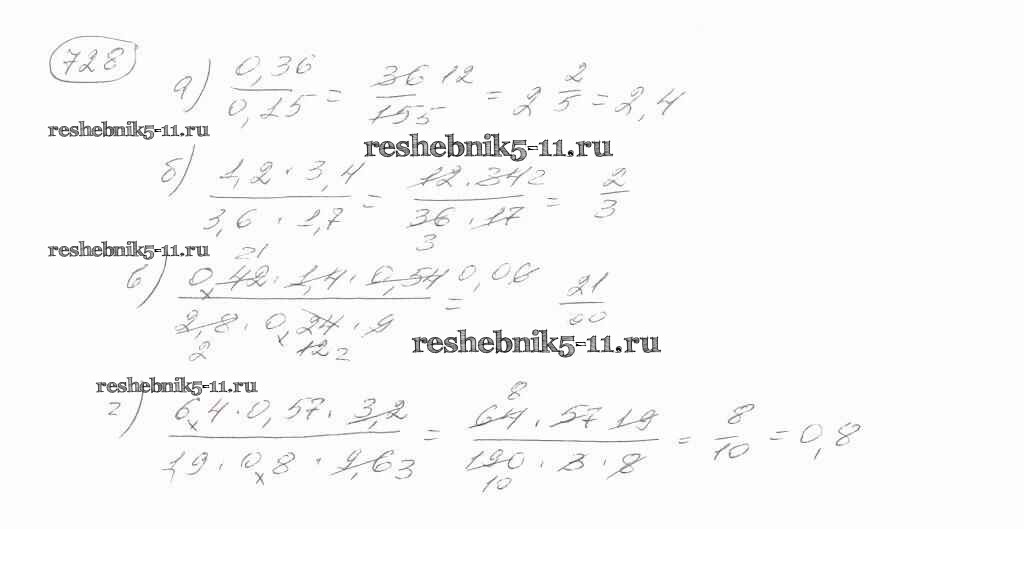 728
а) 0,36 / 0,15 = 36 12 / 15 5 = 2 2/5 = 2,4
reshebnik5-11.ru
reshebnik5-11.ru
б) 1,2 · 3,4 / 3,6 · 1,7 = 12 · 34 2 / 36 · 17 3 = 2/3
reshebnik5-11.ru
21
в) 0,42 · 1,4 · 0,54 0,06 / 2,8 · 0,24 · 9 = 21
2 12 2
reshebnik5-11.ru
reshebnik5-11.ru
8
г) 6,4 · 0,57 · 3,2 / 1,9 · 0,8 · 9,6 3 = 64 · 57 19 / 190 · 3 · 8 = 8/10 = 0,8
10